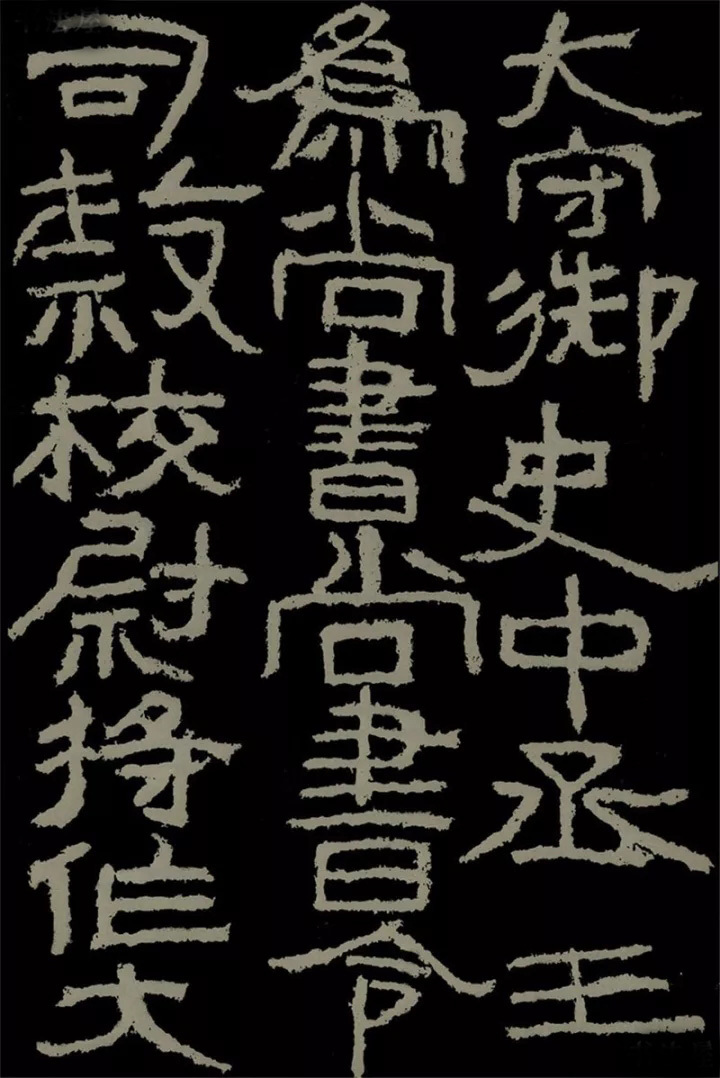 大守御史中丞三
為尚書尚書令
司隸校尉將作大